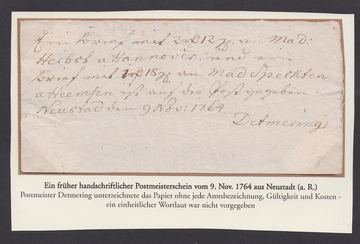 Ein brief mit 2 rt 12 gr an Mad:
Herbst a Hannover, und ein
brief mit 18 an Mad Spechten
a Heemsen ist auf die Post gegeben.
Neustad den 9 Nov: 1764
Detmering
Ein früher handschriftlicher Postmeisterschein vom 9. Nov. 1764 aus Neustadt (a. R.)
Postmeister Detmering unterzeichnete das Papier ohne jede Amtsbezeichnung, Gültigkeit und Kosten -
ein einheitlicher Wortlaut war nicht vorgegeben